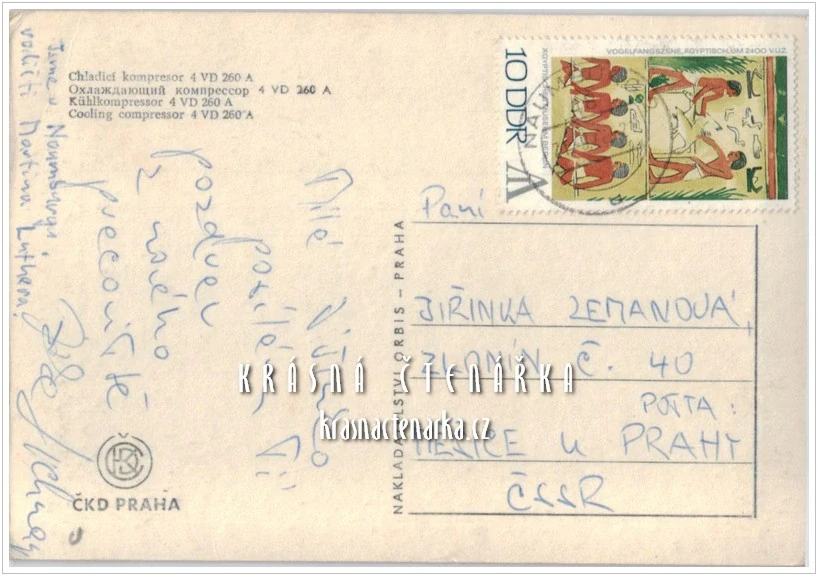 Chladicí kompresor 4 VD 260 A
Охлаждающий компрессор 4 VD 260 A
Kühlkompressor 4 VD 260 A
Cooling compressor 4 VD 260 A
VOGELFANGSZENE, ÄGYPTISCH, UM 2400 V.U.Z.
10 DDR
NAUM
Milá
posílám Ti
pozdrav
z mého
Jsme v Naumburgu,
Martina Luthera!
Paní
JIŘINKA ZEMANOVÁ,
ZLONÍN Č. 40
POŠTA:
MĚŠICE U PRAHY
ČSSR
NAKLADATELSTVÍ ORBIS – PRAHA
ČKD PRAHA
KRÁSNÁ ČTENÁŘKA
krasnactenarka.cz